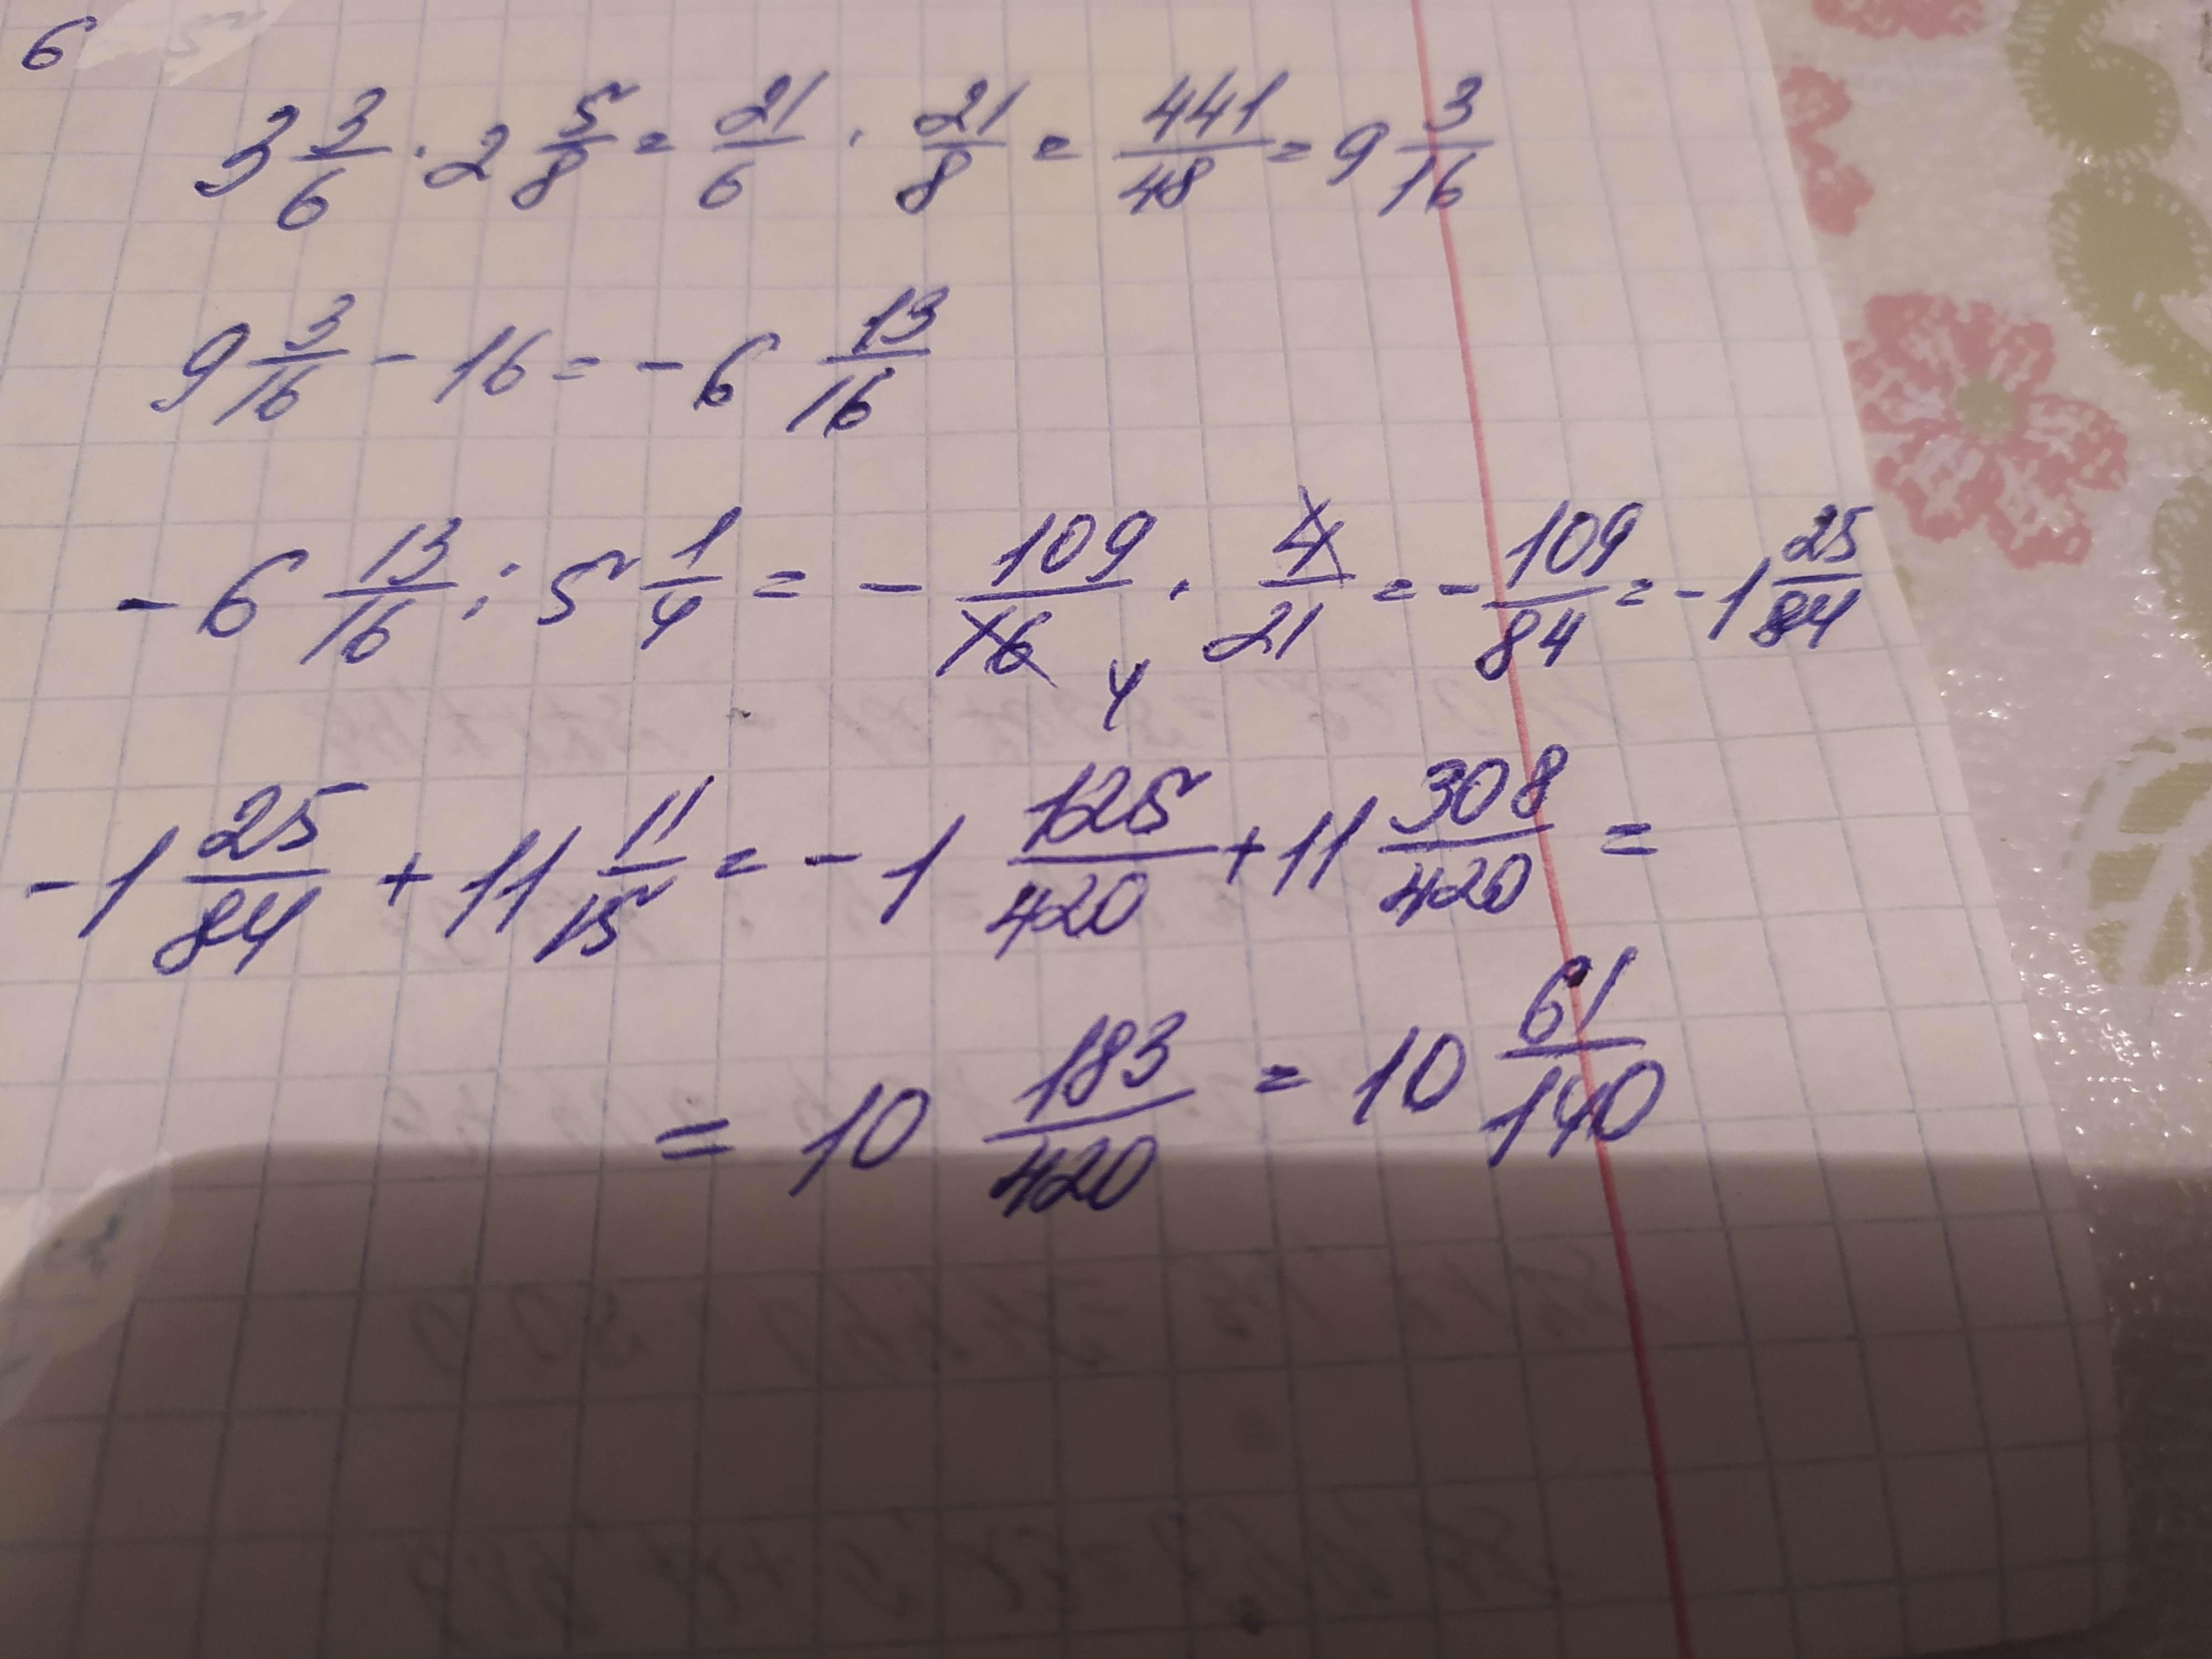 6
3 3/6 · 2 5/8 = 21/6 · 21/8 = 441/48 = 9 3/16
9 3/16 - 16 = - 6 13/16
- 6 13/16 : 5 1/4 = - 109/16 4 · 4/21 = - 109/84 = - 1 25/84
- 1 25/84 + 11 11/15 = - 1 125/420 + 11 308/420 =
= 10 183/420 = 10 61/140